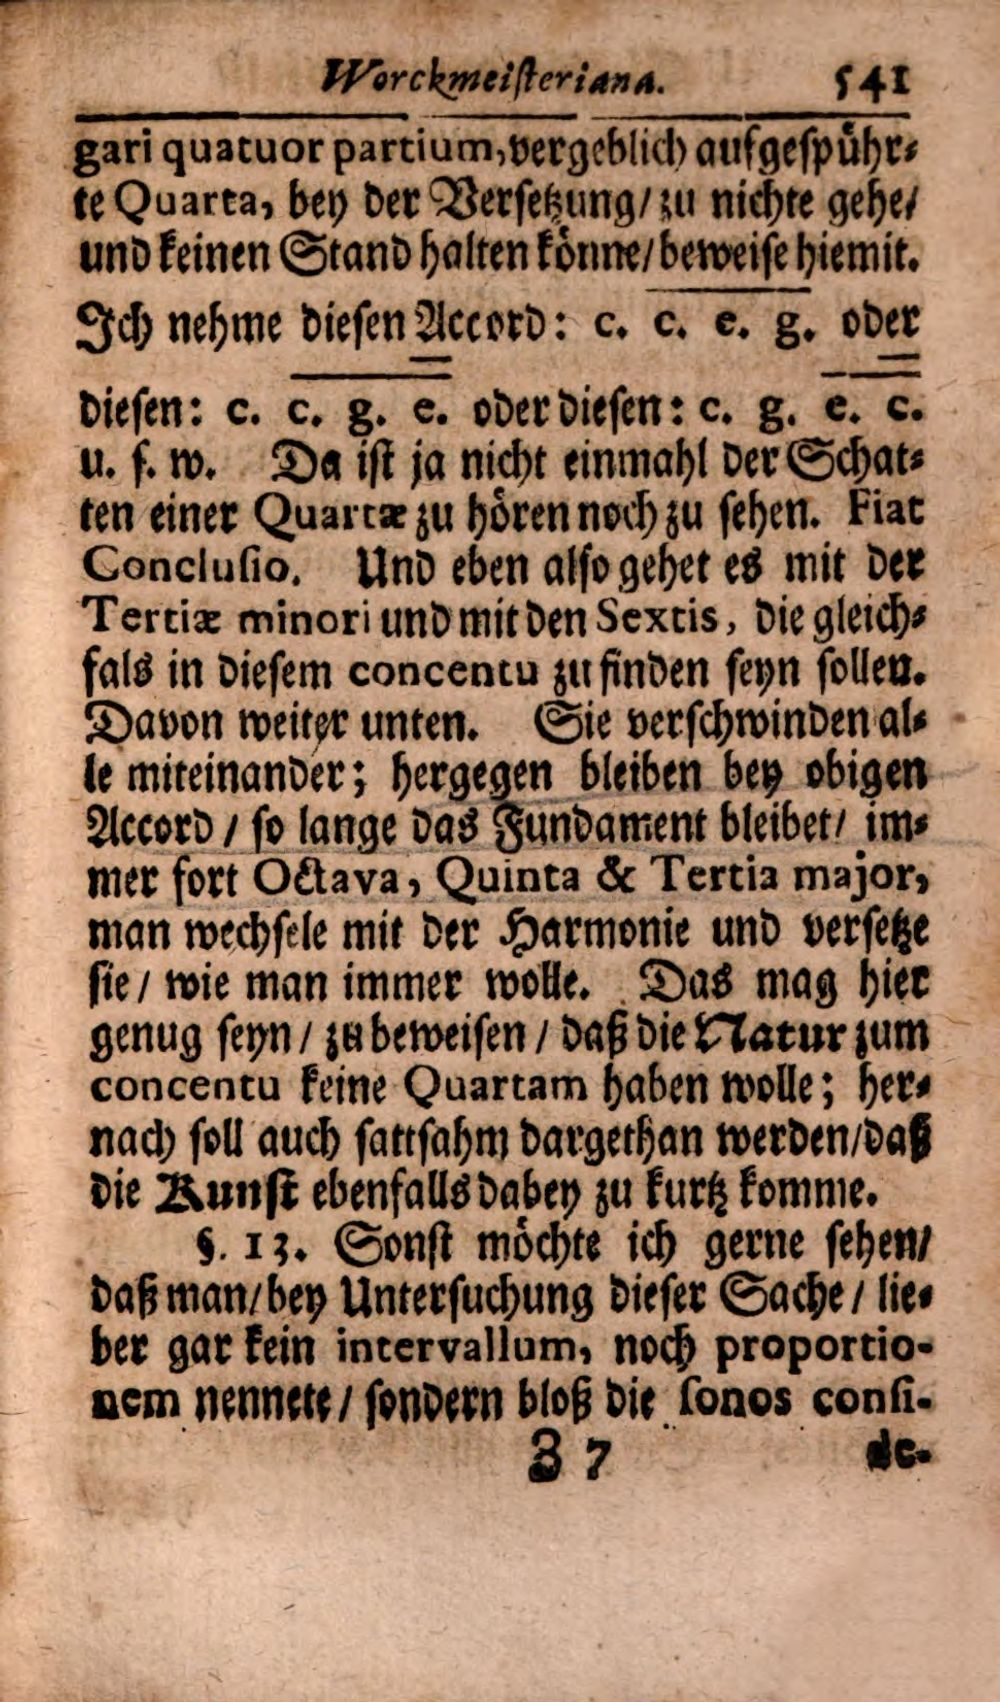 Worckmeisteriana. 541
gari quatuor partium, vergeblich aufgespühr⸗
te Quarta, bey der Versetzung/ zu nichte gehe/
und keinen Stand halten könne/ beweise hiemit.
Ich nehme diesen Accord: c. c̅. e̅. g̅. oder
diesen: c. c̅. g̅. e̿. oder diesen: c. g. e̅. c̿.
u. s. w. Da ist ja nicht einmahl der Schat⸗
ten einer Quartæ zu hören noch zu sehen. Fiat
Conclusio. Und eben also gehet es mit der
Tertiæ minori und mit den Sextis, die gleich⸗
fals in diesem concentu zu finden seyn sollen.
Davon weiter unten. Sie verschwinden al⸗
le miteinander; hergegen bleiben bey obigen
Accord / so lange das Fundament bleibet/ im⸗
mer fort Octava, Quinta & Tertia major,
man wechsele mit der Harmonie und versetze
sie / wie man immer wolle. Das mag hier
genug seyn / zu beweisen / daß die Natur zum
concentu keine Quartam haben wolle; her⸗
nach soll auch sattsahm dargethan werden/ daß
die Kunst ebenfalls dabey zu kurtz komme.
§. 13. Sonst möchte ich gerne sehen/
daß man/ bey Untersuchung dieser Sache / lie⸗
ber gar kein intervallum, noch proportio-
nem nennete / sondern bloß die sonos consi-
Z 7 de-